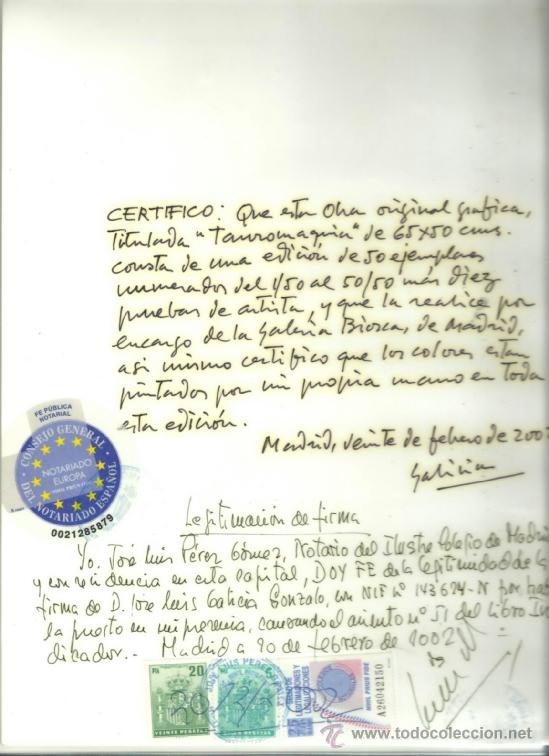 CERTIFICO: Que esta Obra original grafica,
Titulada "Tauromaquia" de 65x50 cms.
consta de una edición de 50 ejemplares
numerados del 1/50 al 50/50 más diez
pruebas de artista, y que la realice por
encargo de la Galeria Biosca, de Madrid,
asi mismo certifico que los colores estan
pintados por mi propia mano en toda
esta edición.
Madrid, veinte de febrero de 200
Galicia
FE PÚBLICA
NOTARIAL
CONSEJO GENERAL
DEL NOTARIADO ESPAÑOL
NOTARIADO
EUROPA
NIHIL PRIUS FIDE
0021285879
Legitimación de firma
Yo, José Luis Pérez Gómez, Notario del Ilustre Colegio de Madrid
y con residencia en esta capital, DOY FE de la legitimidad de la
firma de D. José Luis Galicia Gonzalo, con NIF nº 143624-N por
la puesto en mi presencia, causando el asiento nº 51 del Libro In
dicador.- Madrid a 20 de febrero de 2002
PTA 20
VEINTE PESETAS
SELLO DE
LEGITIMACIONES Y
LEGALIZACIONES
NIHIL PRIUS FIDE
A26042150
© www.todocoleccion.net